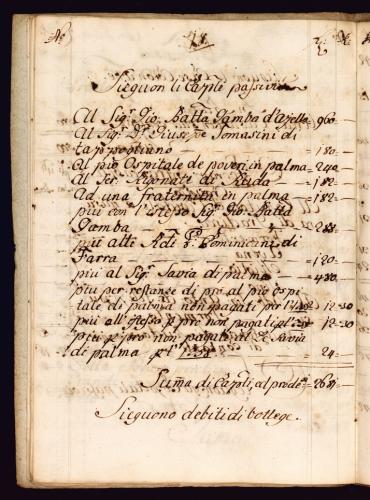 Sieguon li Cap.li passivi
Al Sig.r Gio: Batta Gamba d'Ajello 960
Al Sig.r D.r Giuseppe Tomasini di
180
Al pio Ospitale de poveri in palma 240
di Ruda 182
Ad una fraternità in palma 182
più con l'istesso Sig.r Gio: Batta
Gamba 283
più alli R.di P.P. Dominicani di
Farra 120
più al Sig.r Savia di palma 430
più per restanze di pro al pio ospi
tale di palma non pagati per l' 12-30
più all'istesso p pro non pagati p l' 12-30
più p pro non pagati al S. Savia
di palma p l' 24
Suma di Cap.li, al prode
Sieguono debiti di bottege.